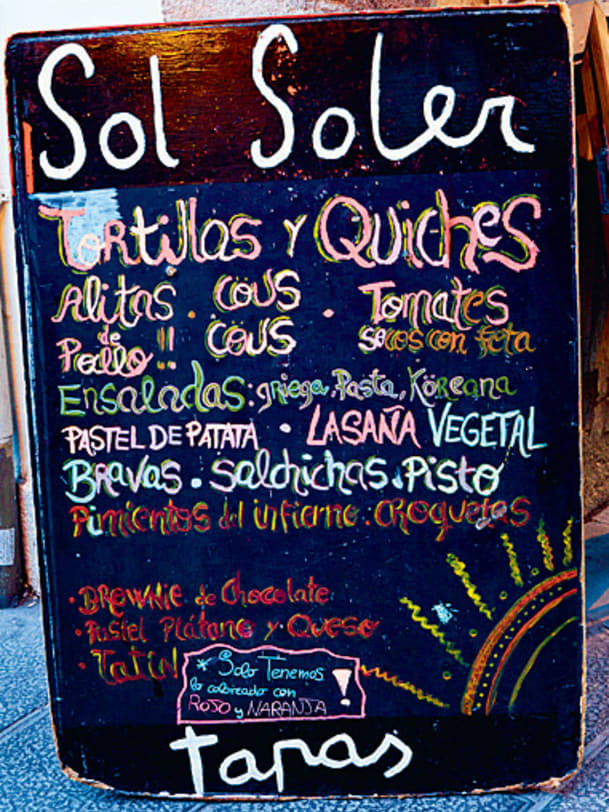 Sol Soler
Tortillas y Quiches
Alitas . Cous . Tomates
de Pollo!! Cous secos con feta
Ensaladas: griega, Pasta, Köreana
PASTEL DE PATATA . LASAÑA VEGETAL
Bravas . salchichas . Pisto
Pimientos del infierno . croquetas
· Brownie de Chocolate
· Pastel Plátano y Queso
· Tatin
* Solo Tenemos
lo coloreado con
ROJO y NARANJA !
tapas